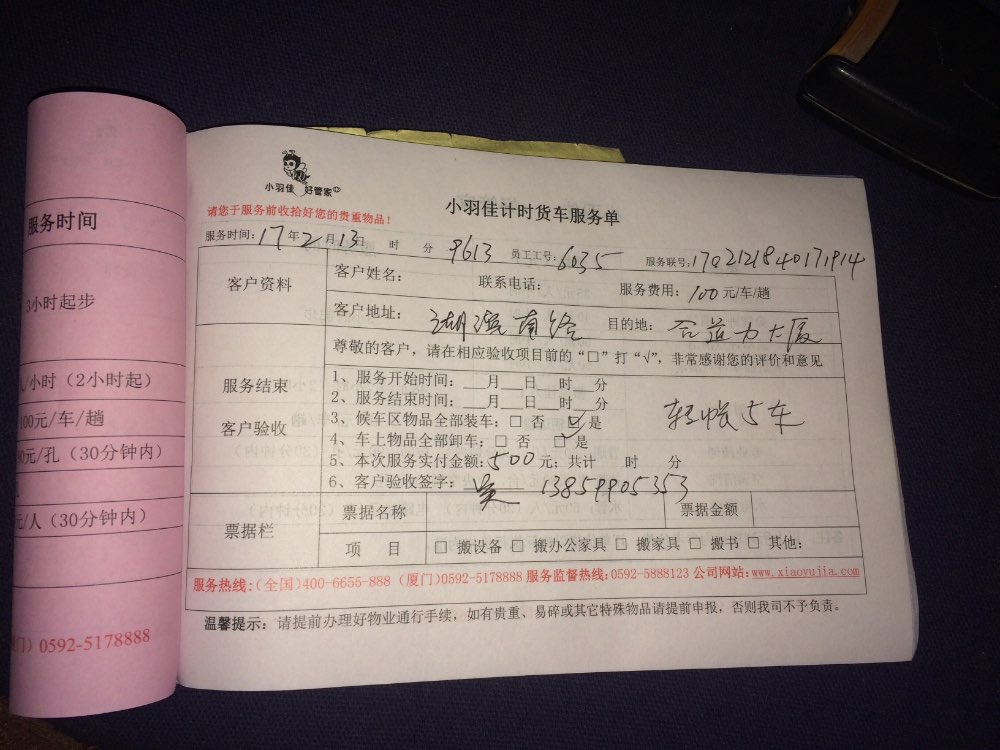 小羽佳 好管家
请您于服务前收拾好您的贵重物品!
小羽佳计时货车服务单
服务时间:17年2月13日 时 分 9613 员工工号:6035 服务联号:1702121840171914
客户资料
客户姓名: 联系电话: 服务费用:100元/车/趟
客户地址: 湖滨南路 目的地: 合益力大厦
尊敬的客户,请在相应验收项目前的“□”打“√”,非常感谢您的评价和意见
服务结束
客户验收
1、服务开始时间:__月__日__时__分
2、服务结束时间:__月__日__时__分
3、候车区物品全部装车:□ 否 ☑是
4、车上物品全部卸车:□ 否 □ 是
5、本次服务实付金额:500元;共计 时 分
6、客户验收签字: 吴 13859905353
5车
票据栏
票据名称 票据金额
项 目 □ 搬设备 □ 搬办公家具 □ 搬家具 □ 搬书 □ 其他:
服务热线:(全国)400-6655-888 (厦门)0592-5178888 服务监督热线:0592-5888123 公司网站:www.xiaoyujia.com
温馨提示:请提前办理好物业通行手续,如有贵重、易碎或其它特殊物品请提前申报,否则我司不予负责。
服务时间
3小时起步
/小时(2小时起)
100元/车/趟
元/孔(30分钟内)
元/人(30分钟内)
门)0592-5178888